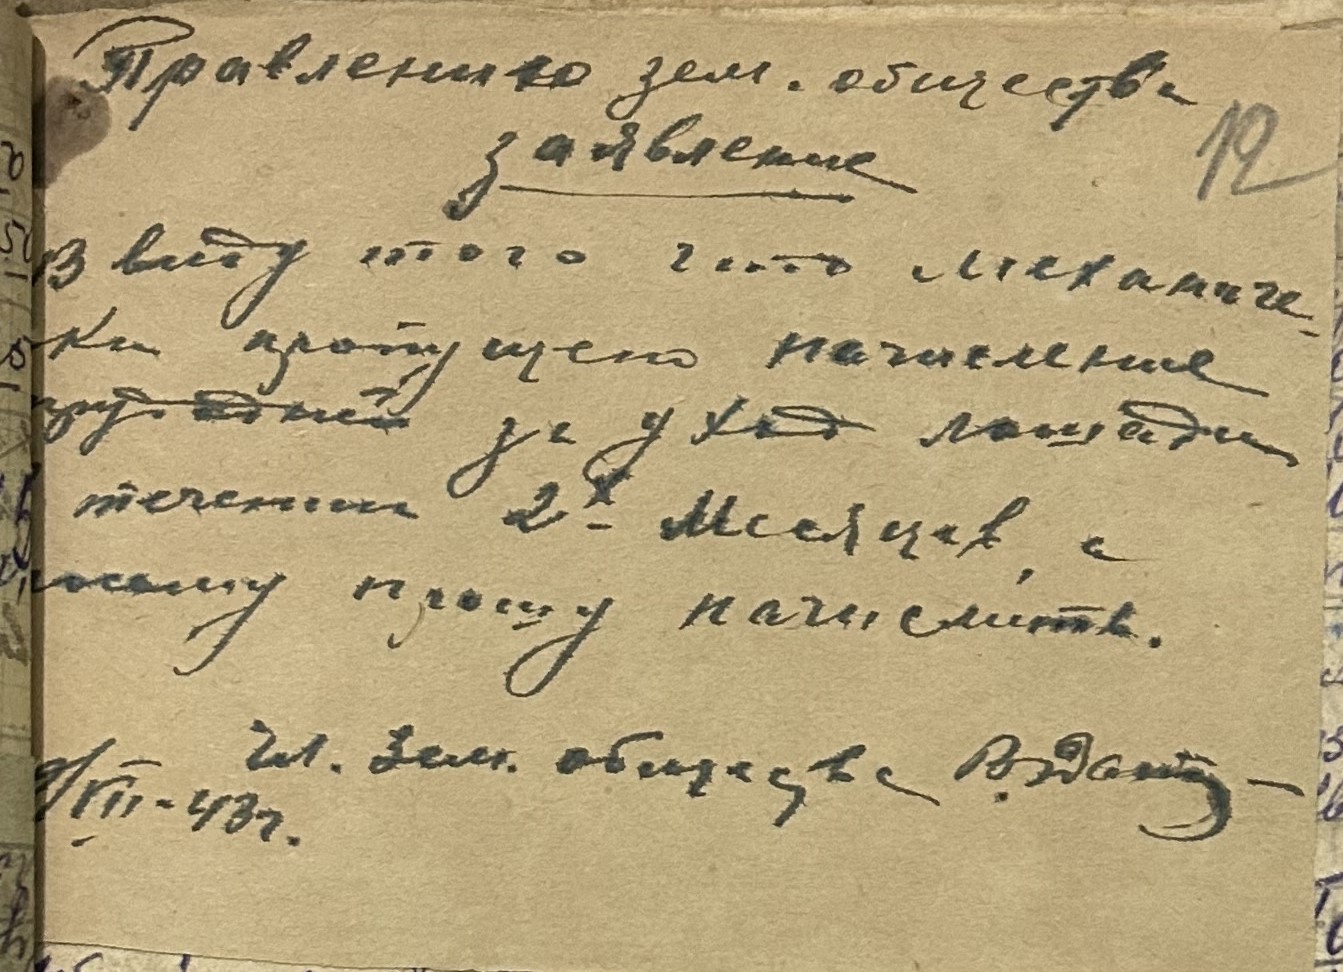 Правлению зем. общества
заявление
12
В виду того что механиче-
ки пропущено начисление
трудодней за уход лошади
течении 2х месяцев, а
посему прошу начислить.
Чл. Зем. общества В.
/VIII-43г.